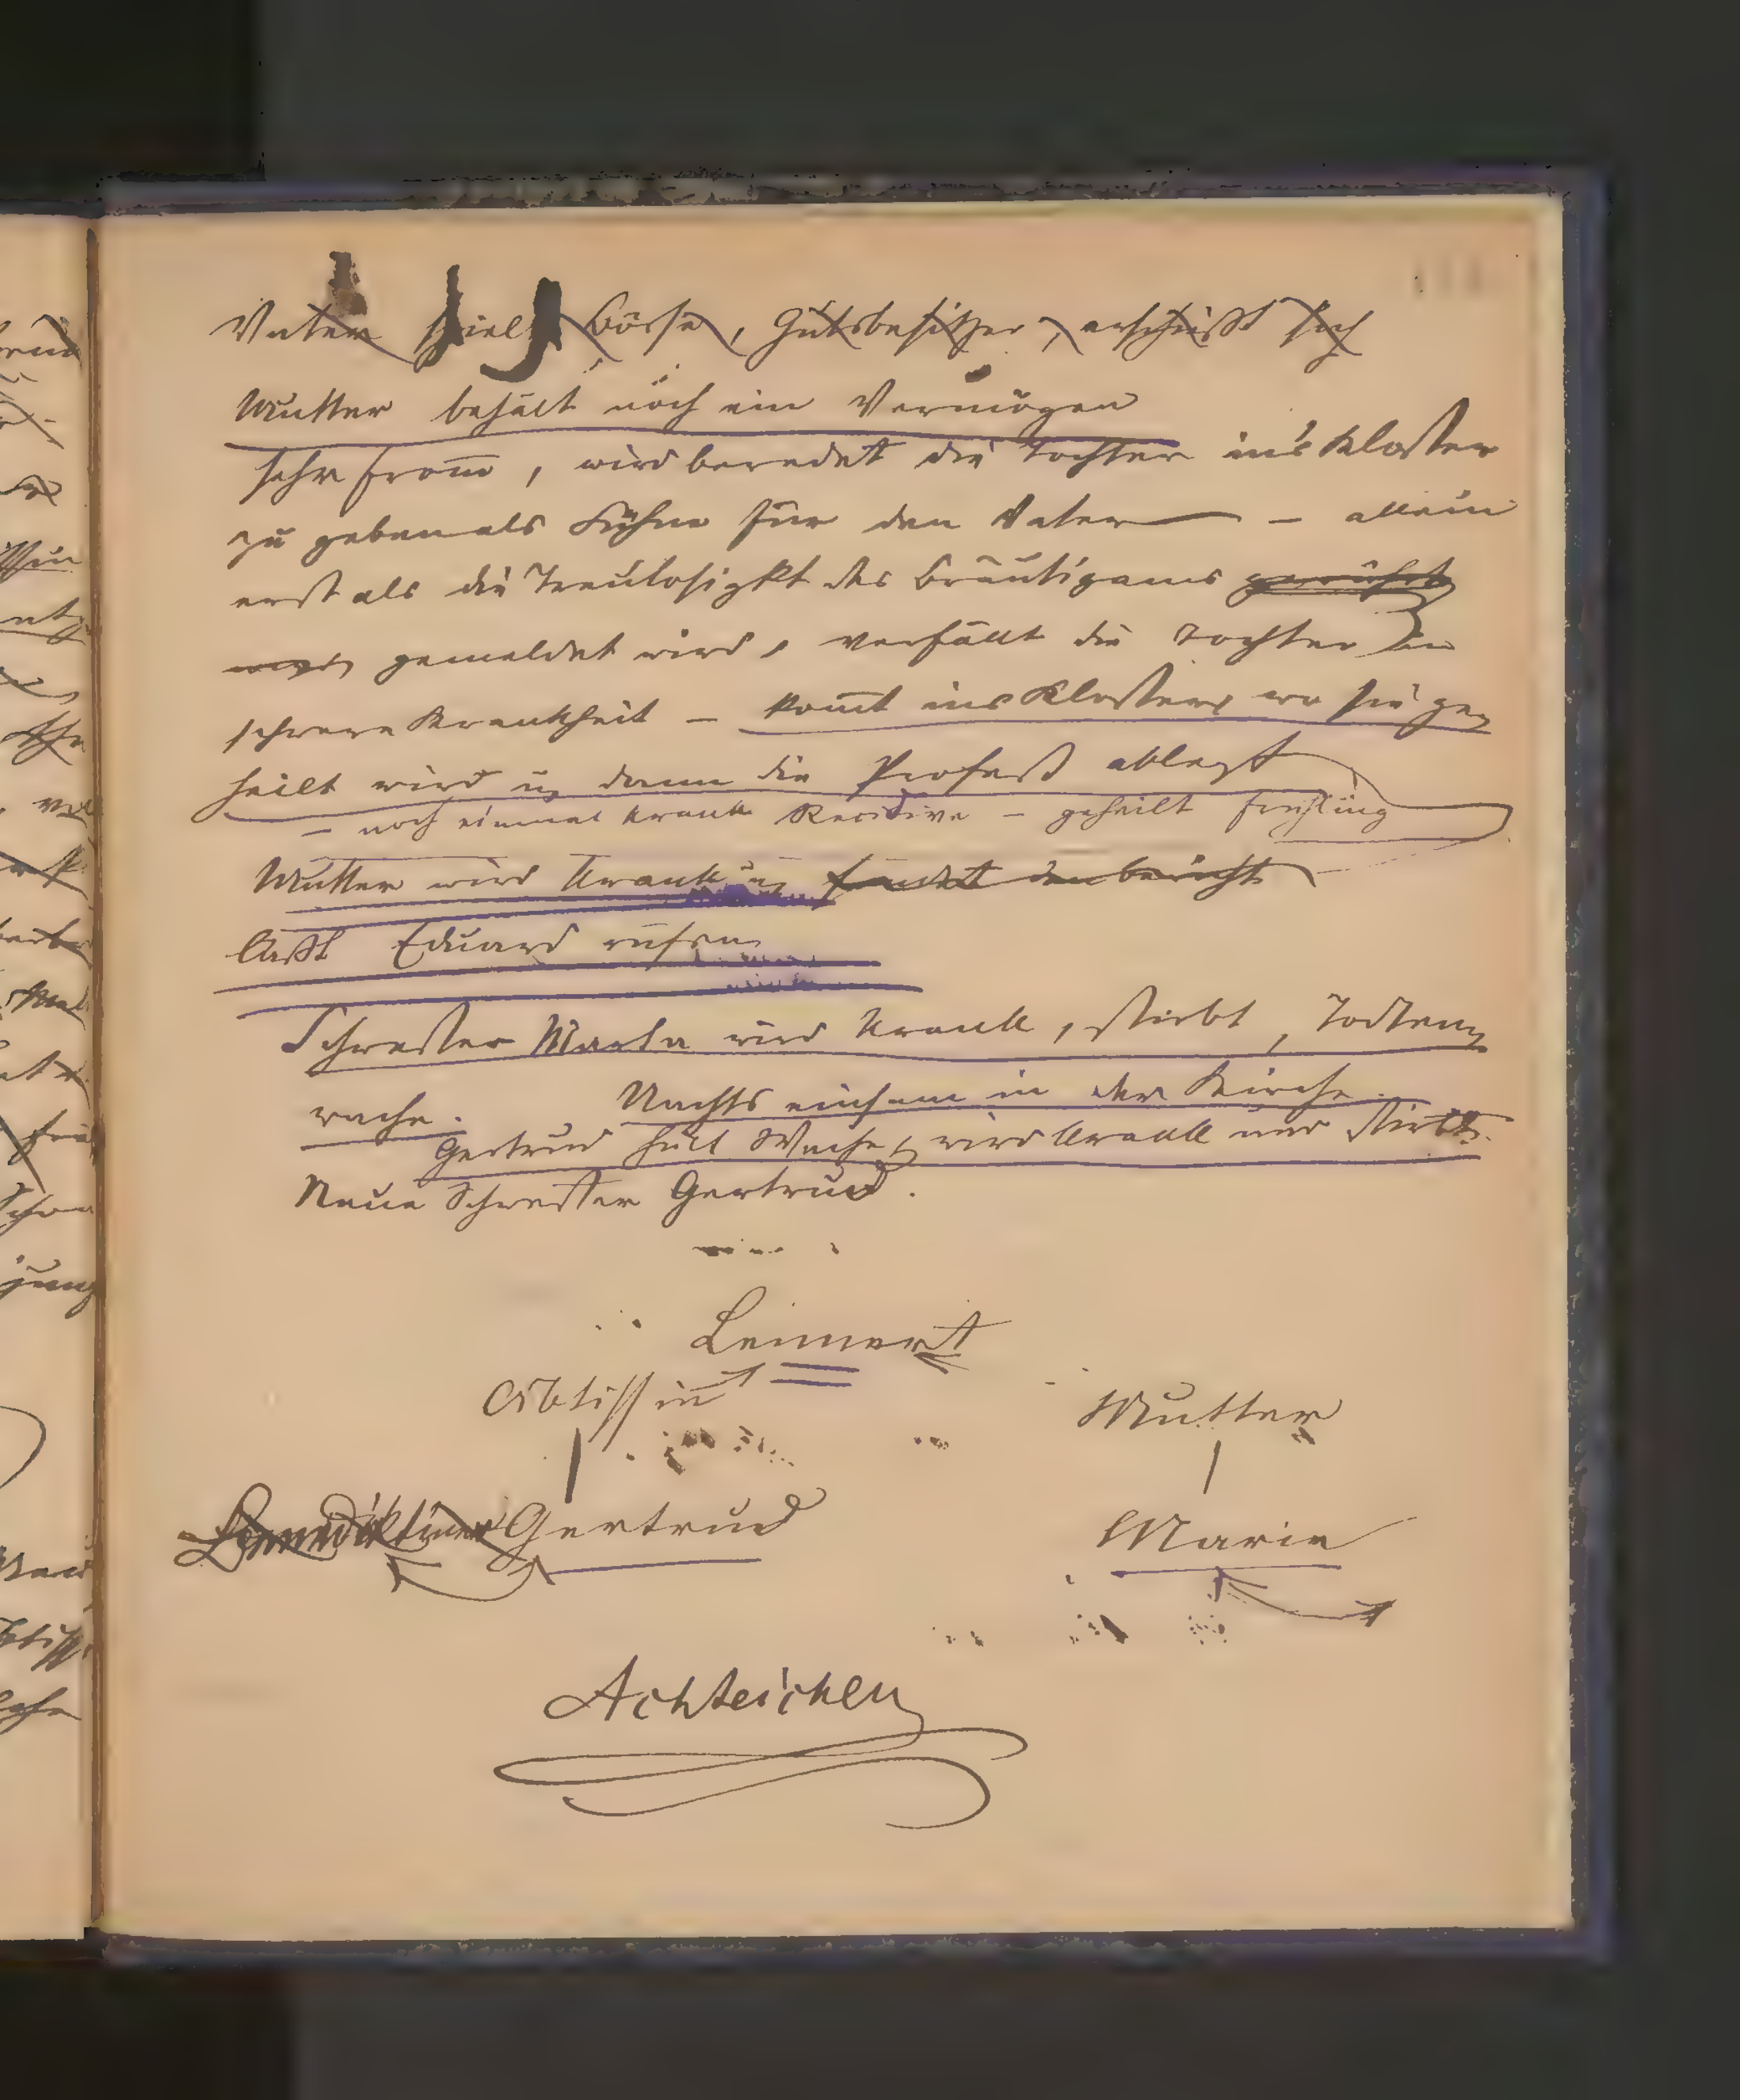 Vater spielt Börse, Gutsbesitzer, erschießt sich
Mutter behält noch ein Vermögen
sehr from̅, wird beredet die Tochter in's Kloster
zu geben als Sühne für den Vater — allein
erst als die Treulosigkt des Bräutigams gerührt
gemeldet wird, verfällt die Tochter in
schwere Krankheit — kom̅t ins Kloster, wo sie ge-
heilt wird u. dann die Profeß ablegt
— noch einmal krank Recidive — geheilt Frühling
Mutter wird krank u. sendet den Bericht
läßt Eduard rufen
Schwester Martha wird krank, stirbt, Todten-
wache. Nachts einsam in der Kirche.
Gertrud hält Wache, wird krank und stirbt.
Neue Schwester Gertrud.
Leinert
Abtissin
Mutter
Benediktiner Gertrud
Marie
Achteichen